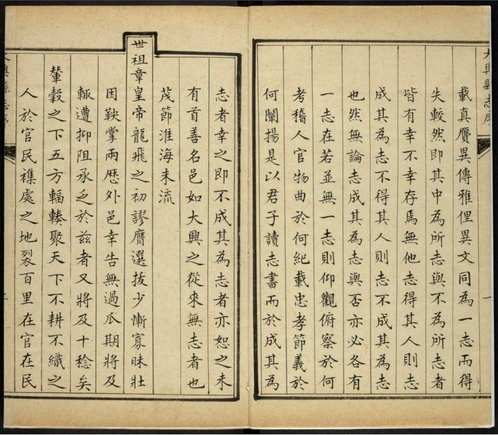 載真贗異傳雅俚異文同為一志而得
失較然即其中為所志與不為所志者
皆有幸不幸存焉無他志得其人則志
成其為志不得其人則志不成其為志
也然無論志成其為志與否亦必各有
一志在若並無一志則仰觀俯察於何
考稽人官物曲於何紀載忠孝節義於
何闡揚是以君子讀志書而於成其為
志者幸之即不成其為志者亦恕之未
有首善名邑如大興之從來無志者也
茂節淮海末流
世祖章皇帝龍飛之初謬膺選拔少慚寡昧壯
困鞅掌兩歷外邑幸告無過瓜期將及
輒遭抑阻承乏於茲者又將及十稔矣
輦轂之下五方輻輳聚天下不耕不織之
人於官民襍處之地裂百里在官在民
大興縣志序